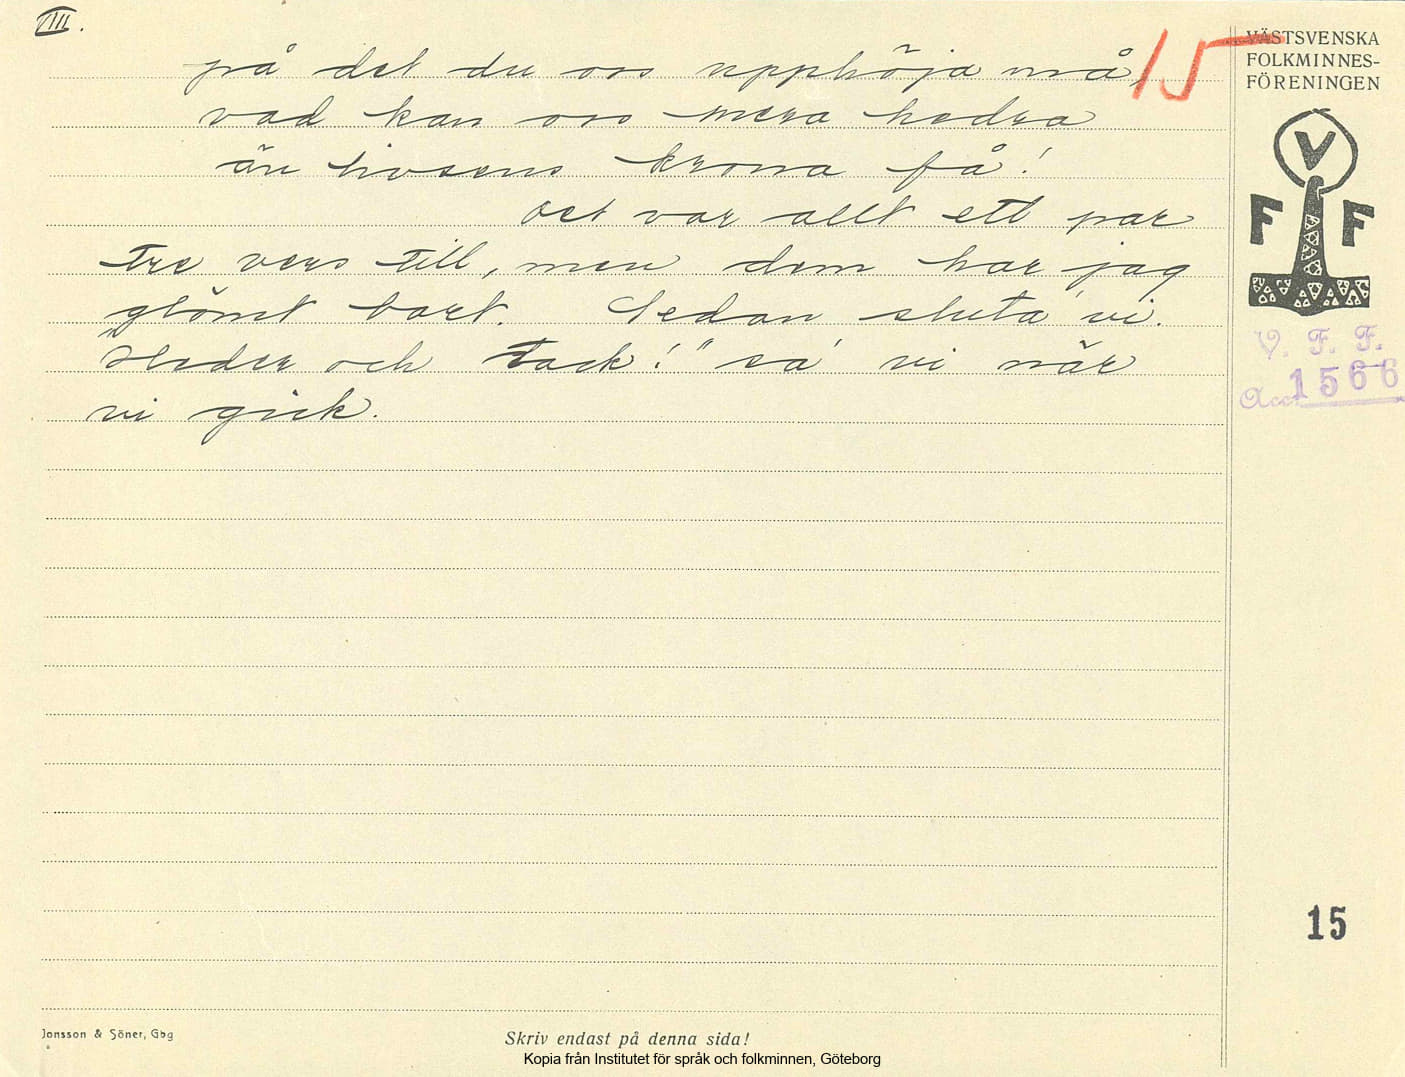 VIII.
på det du oss upphöja må,
vad kan oss mera hedra
än livsens krona få!
Det var allt ett par
tre vers till, men dom har jag
glömt bort. Sedan sluta' vi.
"Heder och tack!" sa' vi när
vi gick.
15
VÄSTSVENSKA
FOLKMINNES-
FÖRENINGEN
V
F F
V. F. F.
Acc. 1566
15
Jonsson & Söner, Gbg
Skriv endast på denna sida!
Kopia från Institutet för språk och folkminnen, Göteborg